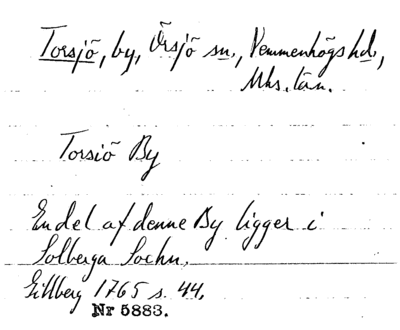 Torsjö, by, Örsjö sn., Vemmenhögs hd.,
Mhs. län.
Torsiö By
En del af denne By ligger i
Solberga Sochn.
Gillberg 1765 s. 44.
Nr 5883.